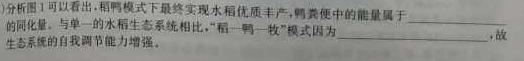 )分析图1可以看出,稻鸭模式下最终实现水稻优质丰产,鸭粪便中的能量属于____________
的同化量。与单一的水稻生态系统相比,“稻—鸭—牧”模式因为____________________,故
生态系统的自我调节能力增强。